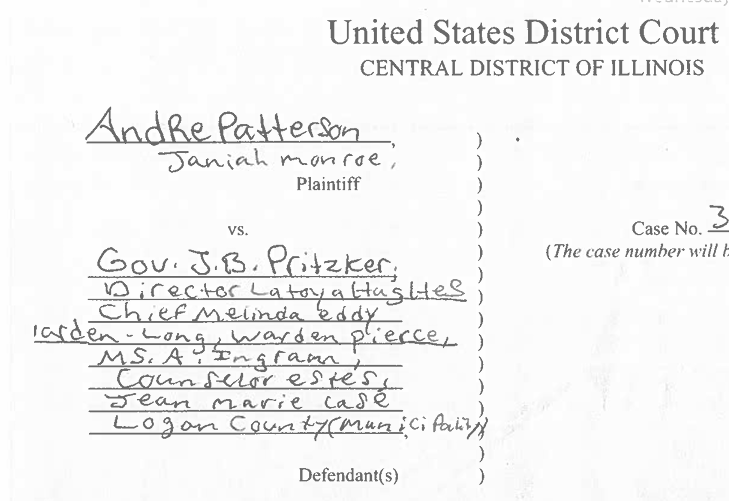 Wednesday
United States District Court
CENTRAL DISTRICT OF ILLINOIS
AndRe Patterson, )
Janiah monroe, )
Plaintiff )
)
vs. ) Case No. 3
) (The case number will b
Gov. J.B. Pritzker, )
Director Latoya Hughes )
Chief Melinda eddy )
arden-Long, Warden pierce, )
MS. A. Ingram, )
Counselor estes, )
Jean marie Case )
Logan County (Municipality)
)
Defendant(s) )